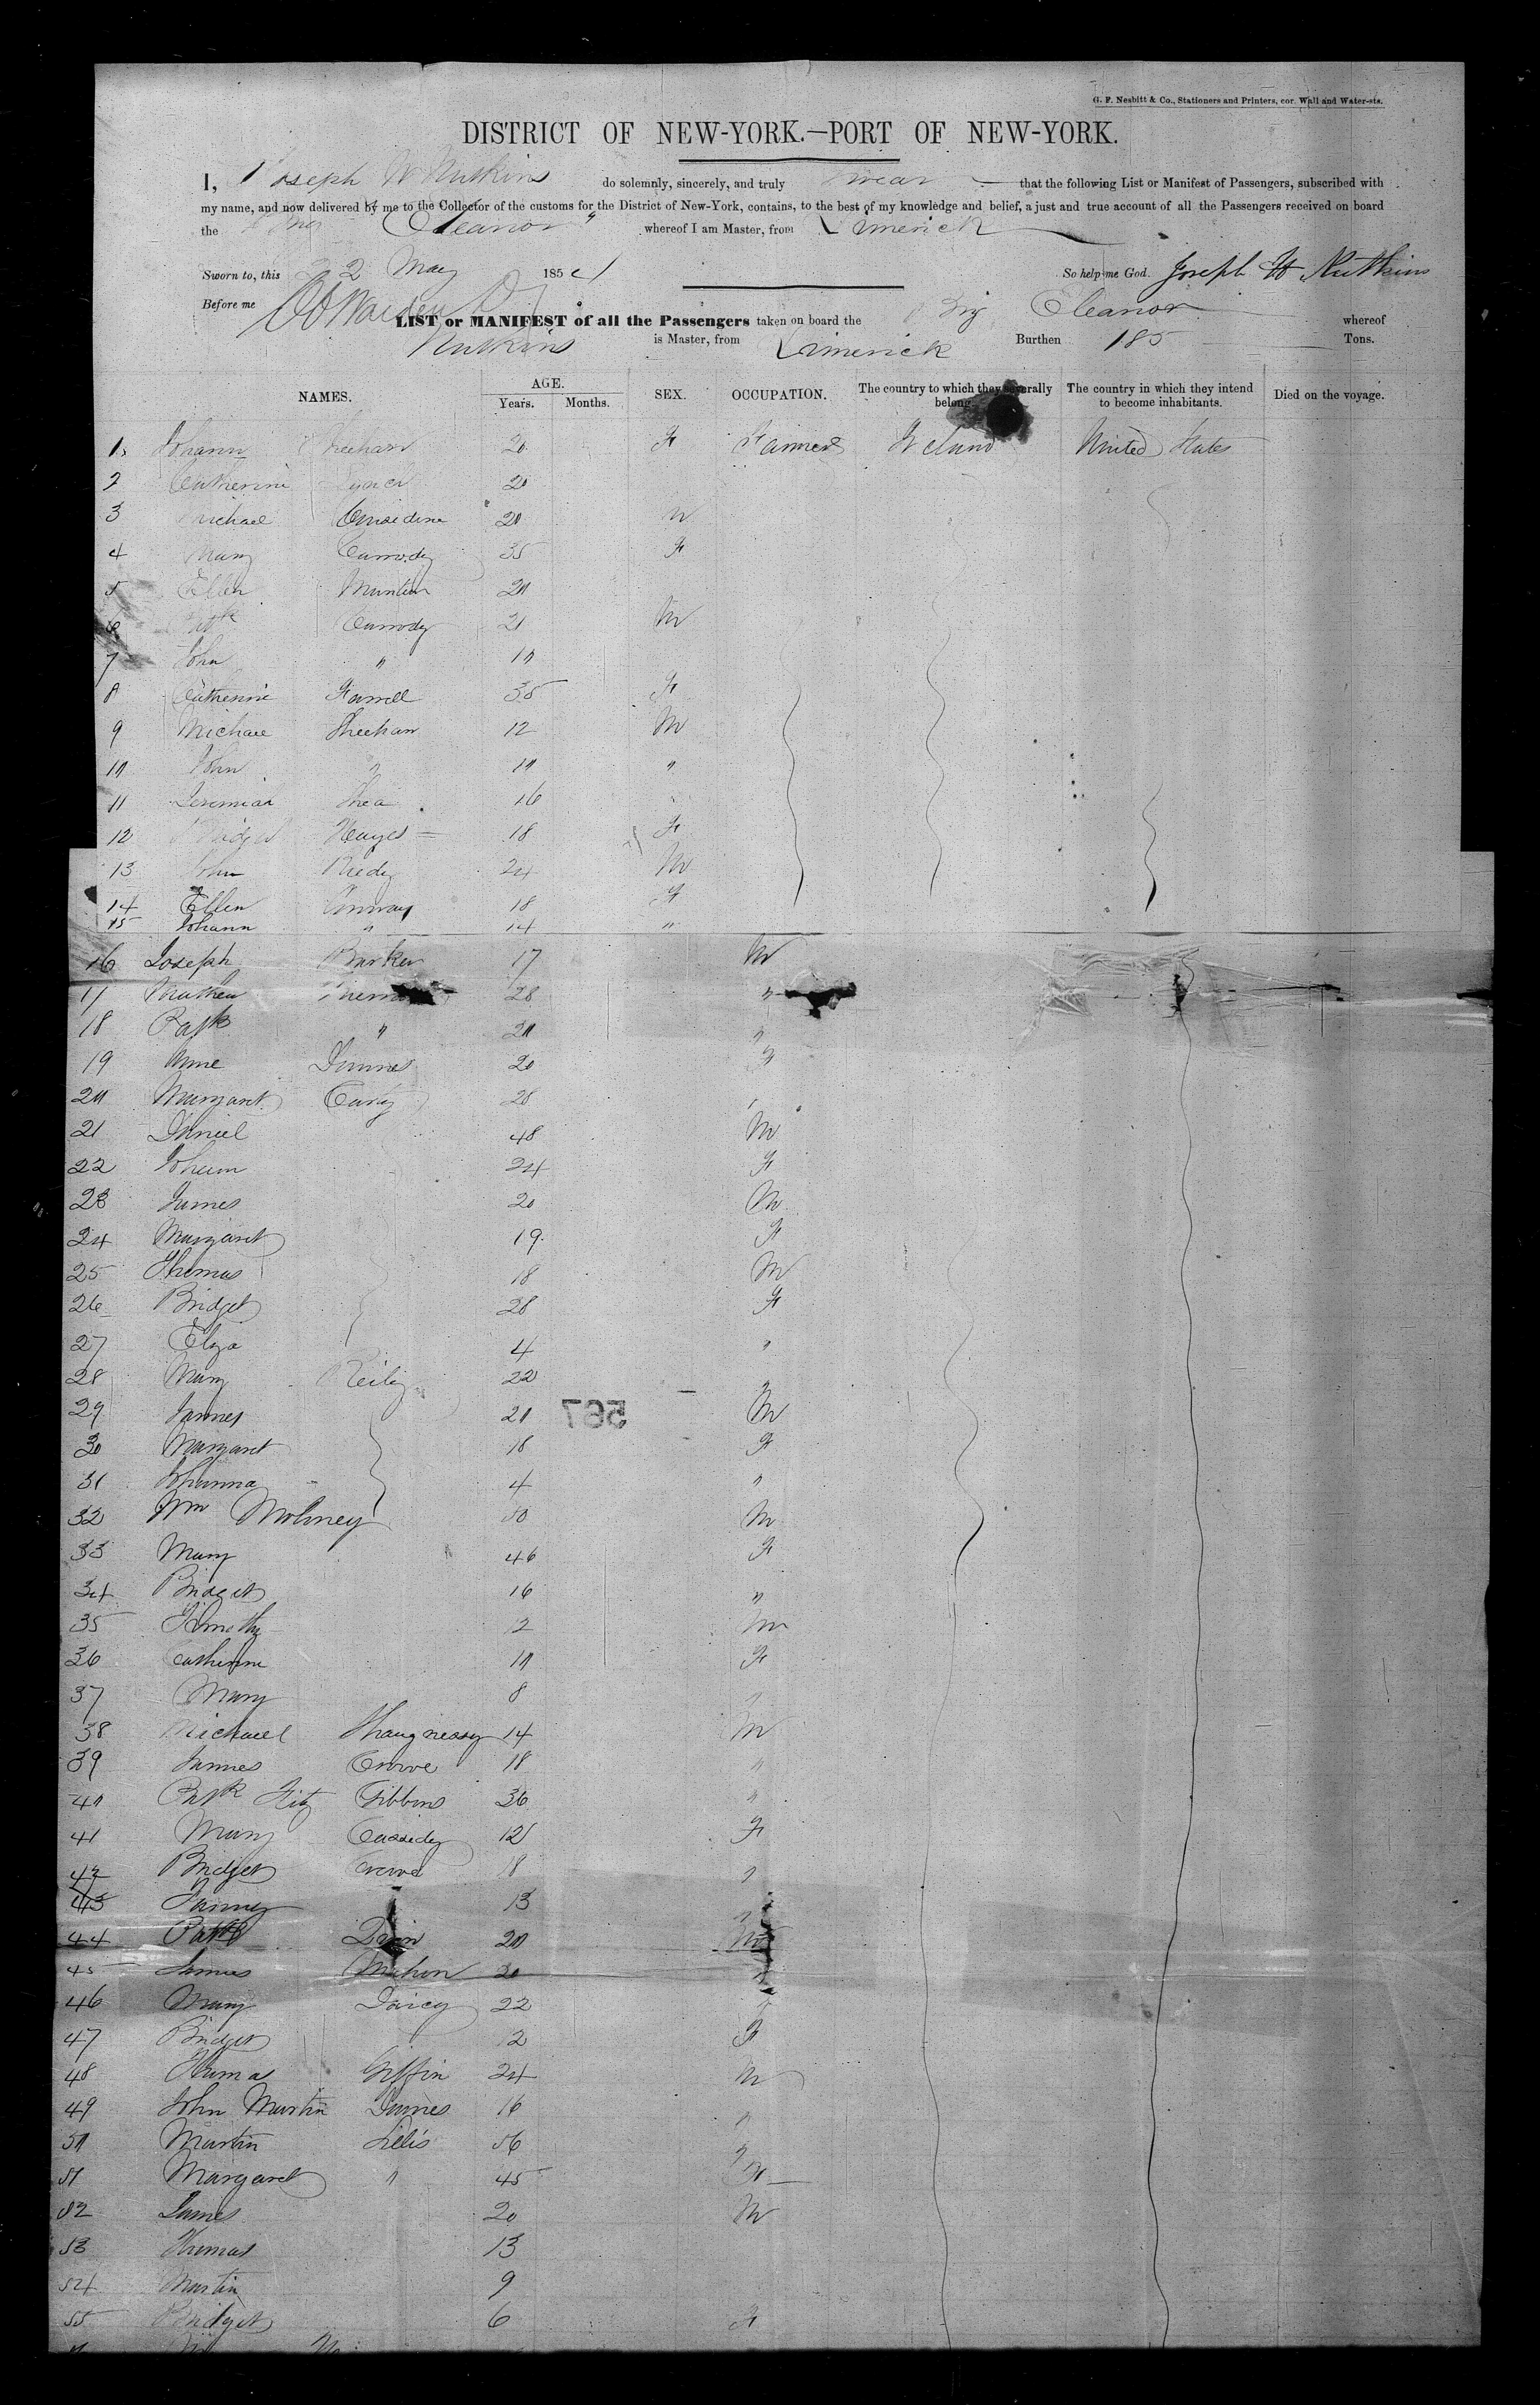 G. F. Nesbitt & Co., Stationers and Printers, cor. Wall and Water-sts.
DISTRICT OF NEW-YORK.—PORT OF NEW-YORK.
I, Joseph do solemnly, sincerely, and truly swear that the following List or Manifest of Passengers, subscribed with
my name, and now delivered by me to the Collector of the customs for the District of New-York, contains, to the best of my knowledge and belief, a just and true account of all the Passengers received on board
the Brig "Eleanor" whereof I am Master, from Limerick
Sworn to, this 22 May 1854 So help me God. Joseph
Before me
LIST or MANIFEST of all the Passengers taken on board the Brig Eleanor whereof
is Master, from Limerick Burthen 185 Tons.
NAMES. AGE. SEX. OCCUPATION. The country to which they severally belong. The country in which they intend to become inhabitants. Died on the voyage.
Years. Months.
1 Johann Sheehan 20 F Farmers Ireland United States
2 Catherine 20
3 Michael 20 M
4 Mary Carmody 35 F
5 Ellen 20
6 Patk Carmody 21 M
7 John " 10
8 Catherine Farrell 35 F
9 Michael Sheehan 12 M
10 John " 10 "
11 Jeremiah Shea 16
12 Bridget Hayes 18 F
13 John 24 M
14 Ellen Conway 18 F
15 Johann " 14 "
16 Joseph Barker 17 M
17 Mathew 28 "
18 Patk " 20 "
19 Anne 20 F
20 Margaret Carey 28 "
21 Daniel 48 M
22 Johann 24 F
23 James 20 M
24 Margaret 19 F
25 Thomas 18 M
26 Bridget 28 F
27 Eliza 4 "
28 Mary Reily 22 "
29 James 20 M
567
30 Margaret 18 F
31 Johanna 4 "
32 Wm Moloney 50 M
33 Mary 46 F
34 Bridget 16 "
35 Timothy 12 M
36 Catherine 10 F
37 Mary 8 "
38 Michael Shaugnessy 14 M
39 James Crowe 18 "
40 Patk Fitz Gibbons 36 "
41 Mary Cassidy 12 F
42 Bridget Crowe 18 "
43 Fanny 13 "
44 Patk 20 M
45 James Mahon 20 "
46 Mary Darcy 22 F
47 Bridget 12 F
48 Thomas Griffin 24 M
49 John Martin 16 "
50 Martin Lillis 56 "
51 Margaret " 45 F
52 James 20 M
53 Thomas 13
54 Martin 9
55 Bridget 6 F